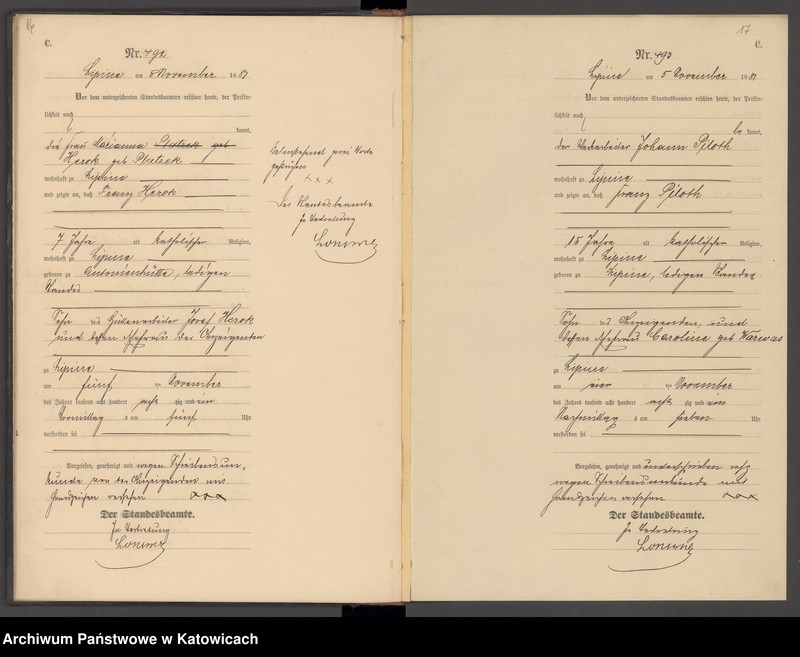 16
C.
Nr. 492
Lipine am 5 November 1881
Vor dem unterzeichneten Standesbeamten erschien heute, der Persön-
lichkeit nach
kannt,
die Frau Marianna Platzek geb
Herok geb Platzek
wohnhaft zu Lipine
und zeigte an, daß Franz Herok
7 Jahre alt katholischer Religion,
wohnhaft zu Lipine
geboren zu Antonienhütte, ledigen
Standes
Sohn des Hüttenarbeiter Josef Herok
und dessen Ehefrau der Anzeigenden
zu Lipine
am fünf ten November
des Jahres tausend acht hundert acht zig und ein
Vormittag s um fünf Uhr
verstorben sei
Vorgelesen, genehmigt und wegen Schreibensun-
kunde von der Anzeigenden mit
Handzeichen versehen xxx
Der Standesbeamte.
In Vertretung
zwei Worte
gestrichen
x x x
Der Standesbeamte
In Vertretung
17
C.
Nr. 493
Lipine am 5 November 1881
Vor dem unterzeichneten Standesbeamten erschien heute, der Persön-
lichkeit nach
be kannt,
der Johann Piloth
wohnhaft zu Lipine
und zeigte an, daß Franz Piloth
15 Jahre alt katholischer Religion,
wohnhaft zu Lipine
geboren zu Lipine, ledigen Standes
Sohn des Anzeigenden, und
dessen Ehefrau Caroline geb Warwas
zu Lipine
am vier ten November
des Jahres tausend acht hundert acht zig und ein
Nachmittag s um sieben Uhr
verstorben sei
Vorgelesen, genehmigt und unterschrieben resp
wegen Schreibensunkunde mit
Handzeichen versehen xxx
Der Standesbeamte.
In Vertretung
Archiwum Państwowe w Katowicach